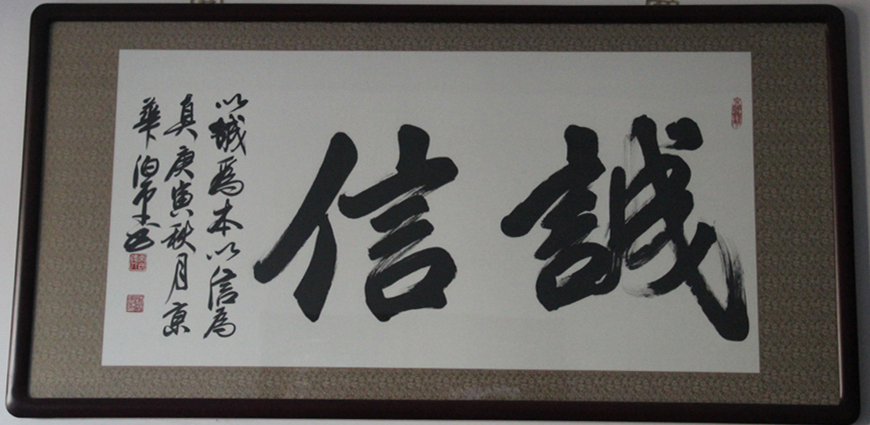 誠信
以誠為本以信為
真庚寅秋月京
華泊